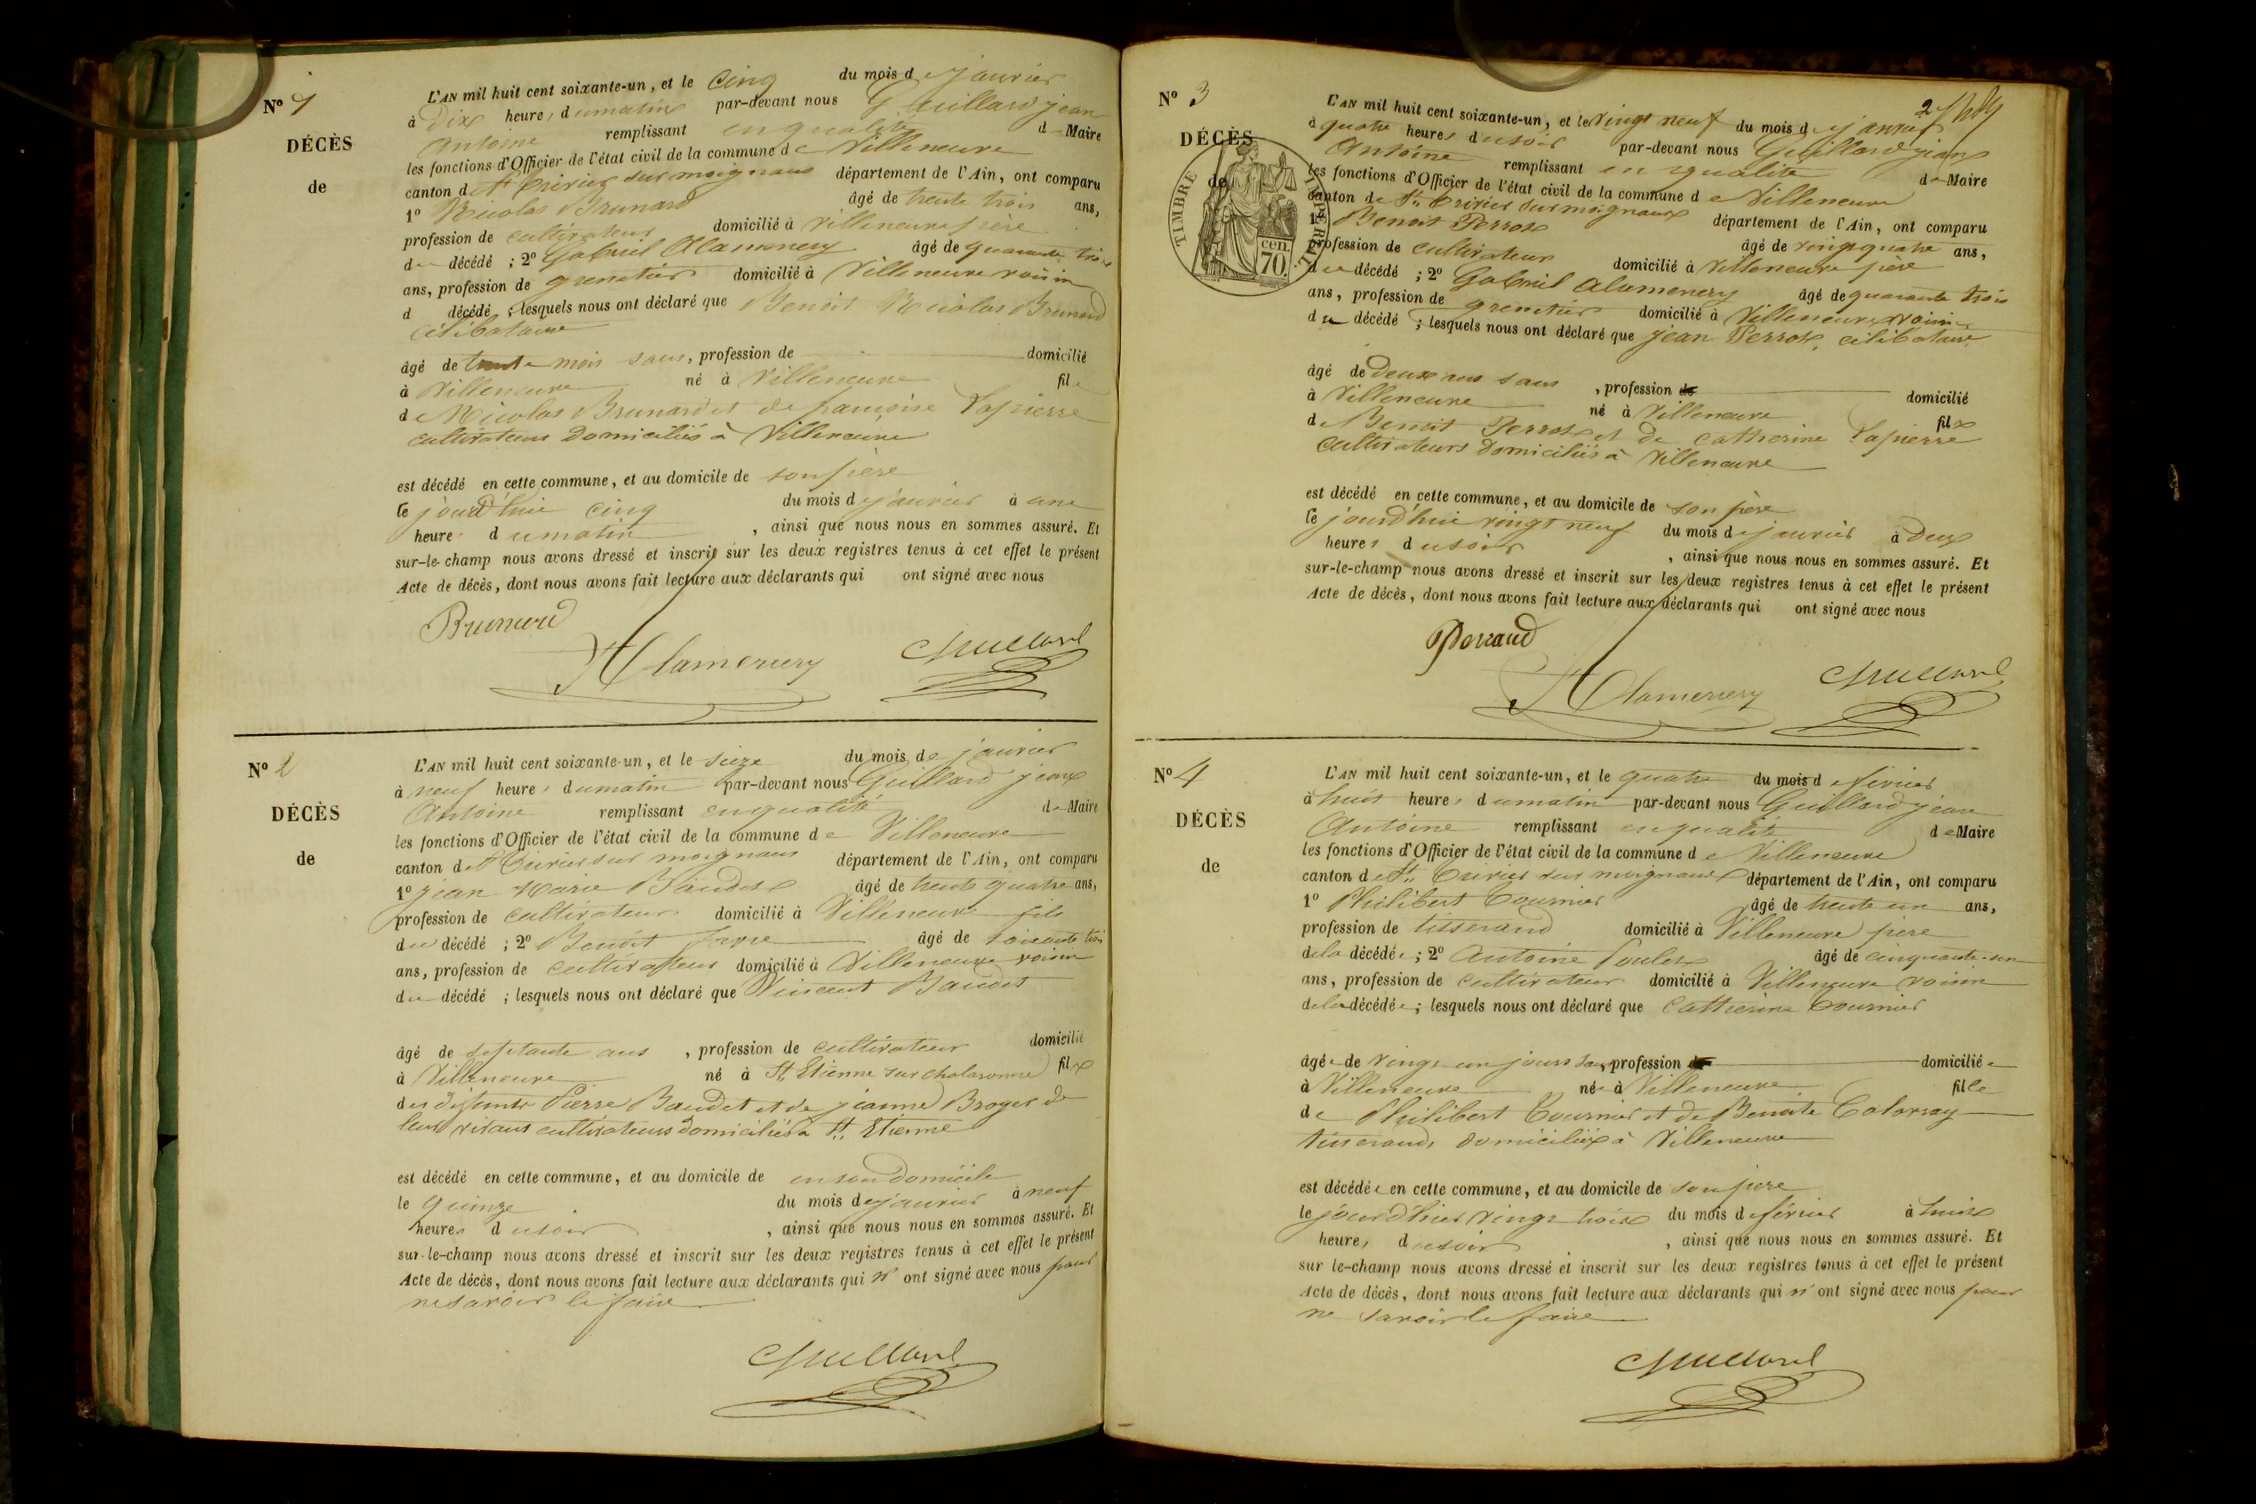 N° 1
DÉCÈS
de
L'AN mil huit cent soixante-un, et le Cinq du mois de janvier
à Dix heures du matin par-devant nous Guillard jean
Antoine remplissant en qualité de Maire
les fonctions d'Officier de l'état civil de la commune de Villeneuve
canton de St Trivier sur moignans département de l'Ain, ont comparu
1° Nicolas Brunard âgé de trente trois ans,
profession de cultivateur domicilié à Villeneuve père
du décédé ; 2° Gabriel Alamenery âgé de quarante trois
ans, profession de grenetier domicilié à Villeneuve voisin
d décédé ; lesquels nous ont déclaré que Benoit Nicolas Brunard
célibataire
âgé de mois sans, profession de domicilié
à Villeneuve né à Villeneuve fil
de Nicolas Brunard et de françoise Lapierre
cultivateurs domiciliés à Villeneuve
est décédé en cette commune, et au domicile de son père
le jourd'hui cinq du mois de janvier à une
heure du matin , ainsi que nous nous en sommes assuré. Et
sur-le-champ nous avons dressé et inscrit sur les deux registres tenus à cet effet le présent
Acte de décès, dont nous avons fait lecture aux déclarants qui ont signé avec nous
Brunard
Alamenery Guillard
N° 2
DÉCÈS
de
L'AN mil huit cent soixante-un, et le seize du mois de janvier
à neuf heures du matin par-devant nous Guillard jean
Antoine remplissant en qualité de Maire
les fonctions d'Officier de l'état civil de la commune de Villeneuve
canton de St Trivier sur moignans département de l'Ain, ont comparu
1° jean Marie Baudet âgé de trente quatre ans,
profession de cultivateur domicilié à Villeneuve fils
du décédé ; 2° Benoit âgé de soixante trois
ans, profession de cultivateur domicilié à Villeneuve voisin
du décédé ; lesquels nous ont déclaré que Vincent Baudet
âgé de septante ans , profession de cultivateur domicilié
à Villeneuve né à St Etienne sur chalaronne fil
des défunts Pierre Baudet et de jeanne Broyer de
leur vivant cultivateurs domiciliés à St Etienne
est décédé en cette commune, et au domicile de en son domicile
le quinze du mois de janvier à neuf
heures du soir , ainsi que nous nous en sommes assuré. Et
sur-le-champ nous avons dressé et inscrit sur les deux registres tenus à cet effet le présent
Acte de décès, dont nous avons fait lecture aux déclarants qui n' ont signé avec nous pour
ne savoir le faire
Guillard
2
N° 3
DÉCÈS
de
TIMBRE IMPÉRIAL
70 cen.
L'AN mil huit cent soixante-un, et le vingt neuf du mois de janvier
à quatre heures du soir par-devant nous Guillard jean
Antoine remplissant en qualité de Maire
les fonctions d'Officier de l'état civil de la commune de Villeneuve
canton de St Trivier sur moignans département de l'Ain, ont comparu
1° Benoit Perrot âgé de vingt quatre ans,
profession de cultivateur domicilié à Villeneuve père
du décédé ; 2° Gabriel Alamenery âgé de quarante trois
ans, profession de grenetier domicilié à Villeneuve voisin
du décédé ; lesquels nous ont déclaré que jean Perrot, célibataire
âgé de deux ans sans , profession de domicilié
à Villeneuve né à Villeneuve fil
de Benoit Perrot et de catherine Lapierre
cultivateurs domiciliés à Villeneuve
est décédé en cette commune, et au domicile de son père
le jourd'hui vingt neuf du mois de janvier à deux
heures du soir , ainsi que nous nous en sommes assuré. Et
sur-le-champ nous avons dressé et inscrit sur les deux registres tenus à cet effet le présent
Acte de décès, dont nous avons fait lecture aux déclarants qui ont signé avec nous
Alamenery Guillard
N° 4
DÉCÈS
de
L'AN mil huit cent soixante-un, et le quatre du mois de février
à huit heures du matin par-devant nous Guillard jean
Antoine remplissant en qualité de Maire
les fonctions d'Officier de l'état civil de la commune de Villeneuve
canton de St Trivier sur moignans département de l'Ain, ont comparu
1° Philibert Tournier âgé de trente un ans,
profession de tisserand domicilié à Villeneuve père
de la décédée ; 2° Antoine Poulet âgé de cinquante-un
ans, profession de cultivateur domicilié à Villeneuve voisin
de la décédée ; lesquels nous ont déclaré que Catherine Tournier
âgée de vingt un jours sans, profession de domiciliée
à Villeneuve née à Villeneuve fille
de Philibert Tournier et de Benoite
tisserands domiciliés à Villeneuve
est décédée en cette commune, et au domicile de son père
le jourd'hier vingt trois du mois de février à huit
heures du soir , ainsi que nous nous en sommes assuré. Et
sur le-champ nous avons dressé et inscrit sur les deux registres tenus à cet effet le présent
Acte de décès, dont nous avons fait lecture aux déclarants qui n' ont signé avec nous pour
ne savoir le faire
Guillard